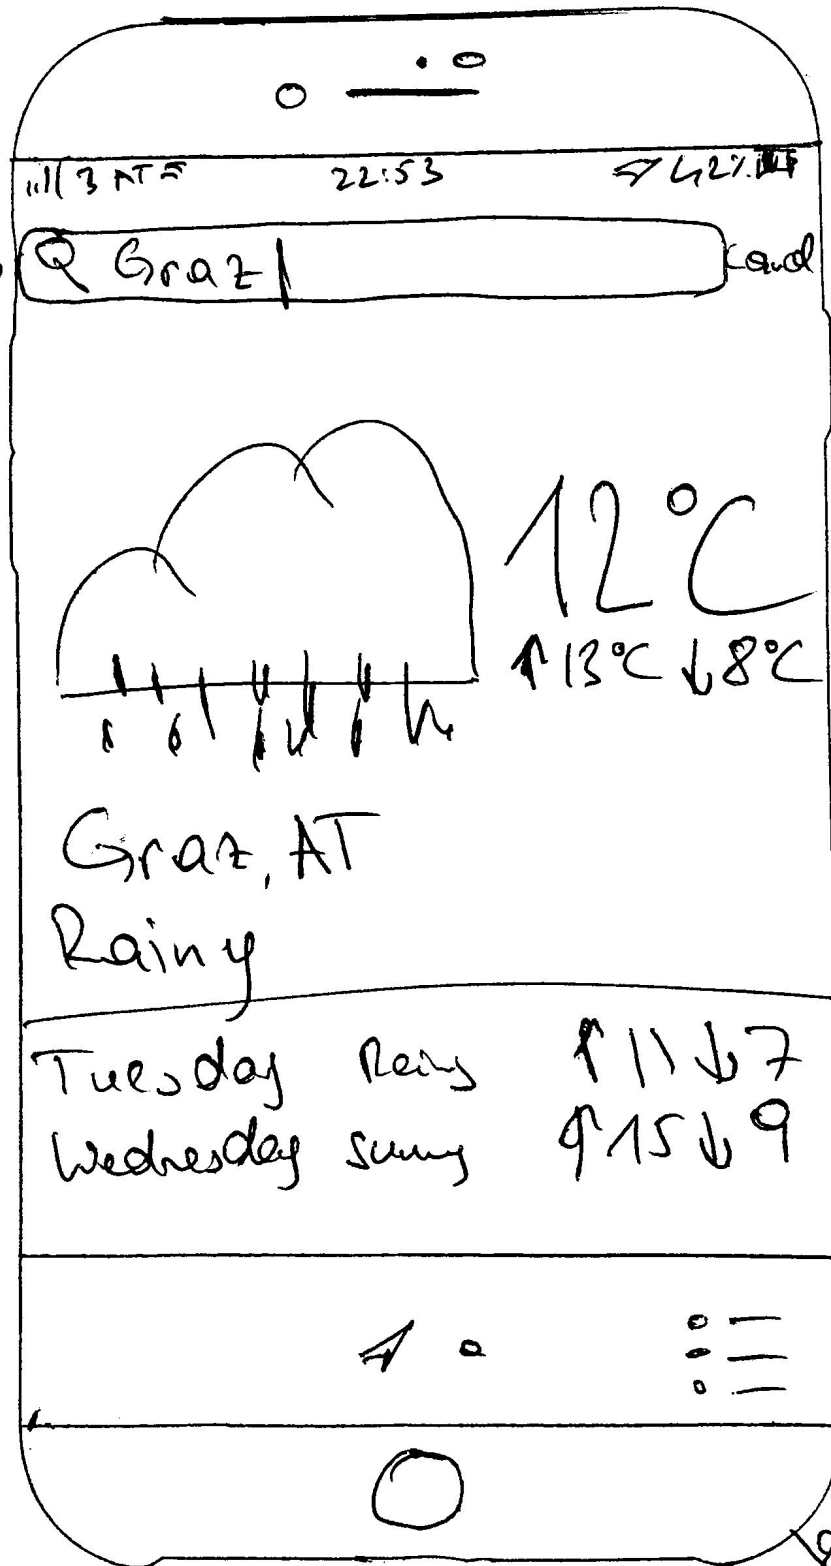 3 AT 22:53 42%
Graz
12°C
↑13°C ↓8°C
Graz, AT
Rainy
Tuesday Rainy ↑11 ↓7
Wednesday sunny ↑15 ↓9